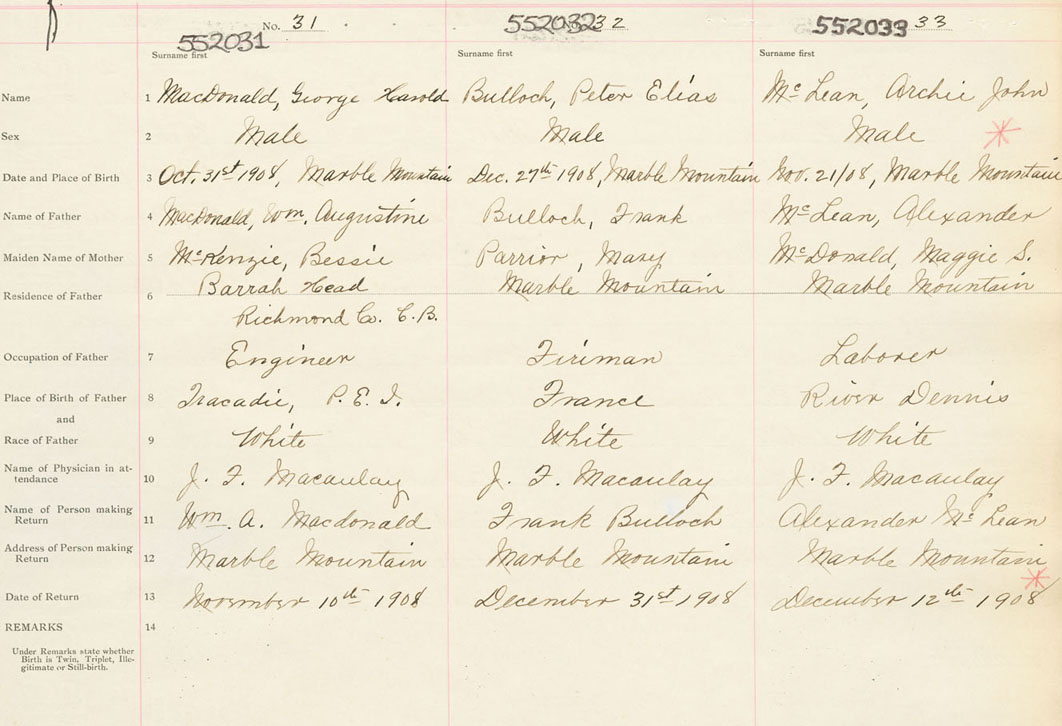 No. 31 552032 No. 32 552033 33
552031
Surname first Surname first Surname first
Name 1 MacDonald, George Harold Bulloch, Peter Elias McLean, Archie John
Sex 2 Male Male Male
Date and Place of Birth 3 Oct. 31st 1908, Marble Mountain Dec. 27th 1908, Marble Mountain Nov. 21/08, Marble Mountain
Name of Father 4 MacDonald, Wm. Augustine Bulloch, Frank McLean, Alexander
Maiden Name of Mother 5 McKenzie, Bessie Parrior, Mary McDonald, Maggie S.
Residence of Father 6 Barrah Head Marble Mountain Marble Mountain
Richmond Co. C.B.
Occupation of Father 7 Engineer Firiman Laborer
Place of Birth of Father 8 Tracadie, P.E.I. France River Dennis
and
Race of Father 9 White White White
Name of Physician in at-
tendance 10 J. F. Macaulay J. F. Macaulay J. F. Macaulay
Name of Person making
Return 11 Wm. A. Macdonald Frank Bulloch Alexander McLean
Address of Person making
Return 12 Marble Mountain Marble Mountain Marble Mountain
Date of Return 13 November 10th 1908 December 31st 1908 December 12th 1908
REMARKS 14
Under Remarks state whether
Birth is Twin, Triplet, Ille-
gitimate or Still-birth.